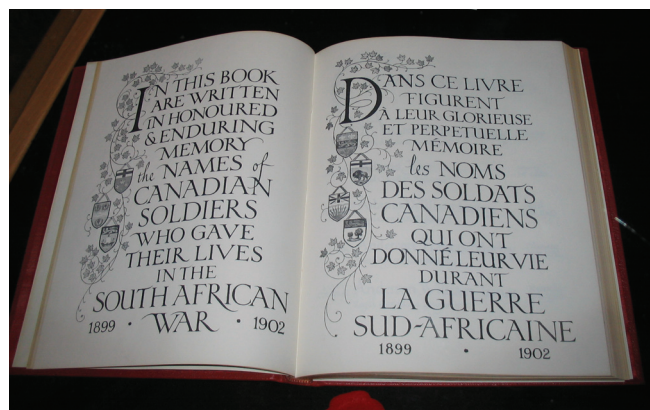 IN THIS BOOK
ARE WRITTEN
IN HONOURED
& ENDURING
MEMORY
the NAMES of
CANADIAN
SOLDIERS
WHO GAVE
THEIR LIVES
IN THE
SOUTH AFRICAN
1899 · WAR · 1902
DANS CE LIVRE
FIGURENT
À LEUR GLORIEUSE
ET PERPETUELLE
MÉMOIRE
les NOMS
DES SOLDATS
CANADIENS
QUI ONT
DONNÉ LEUR VIE
DURANT
LA GUERRE
SUD-AFRICAINE
1899 · 1902